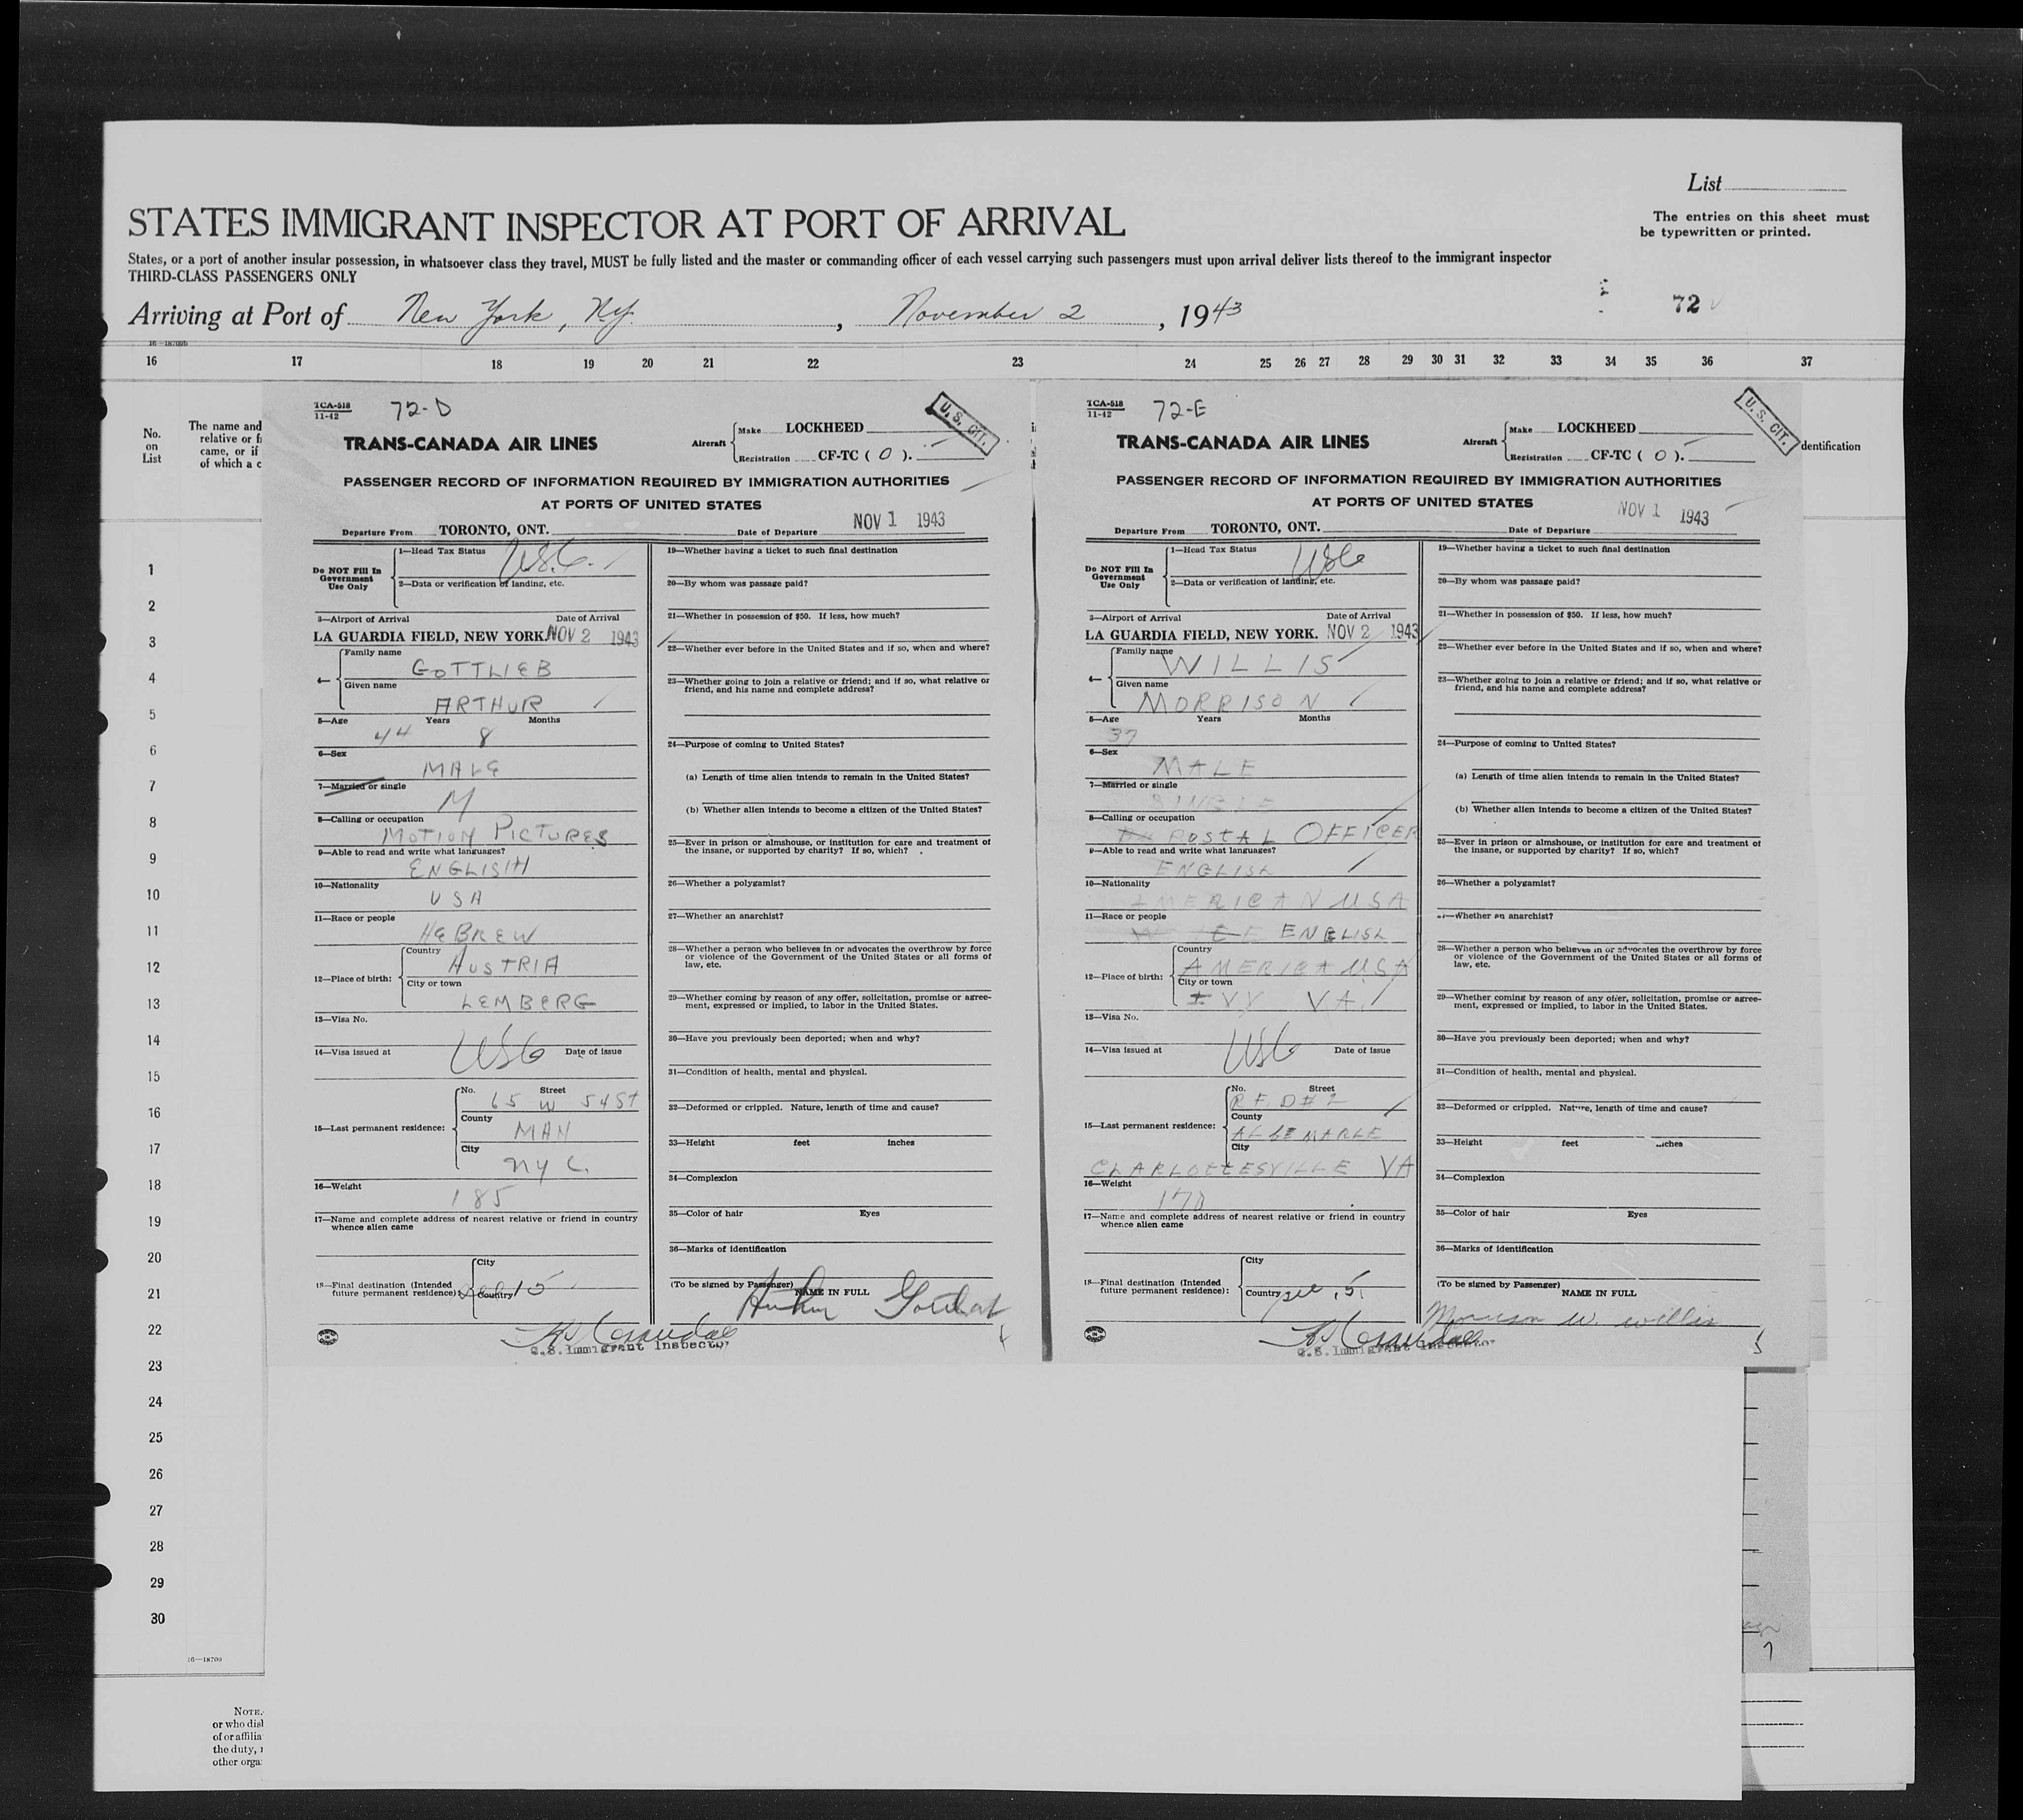 List
The entries on this sheet must
be typewritten or printed.
STATES IMMIGRANT INSPECTOR AT PORT OF ARRIVAL
States, or a port of another insular possession, in whatsoever class they travel, MUST be fully listed and the master or commanding officer of each vessel carrying such passengers must upon arrival deliver lists thereof to the immigrant inspector
THIRD-CLASS PASSENGERS ONLY
Arriving at Port of New York, N.Y. , November 2 , 1943
72
16 17 18 19 20 21 22 23 24 25 26 27 28 29 30 31 32 33 34 35 36 37
No.
on
List
The name and
relative or f
came, or if
of which a c
dentification
1
2
3
4
5
6
7
8
9
10
11
12
13
14
15
16
17
18
19
20
21
22
23
24
25
26
27
28
29
30
16—18709
NOTE.
or who disl
of or affilia
the duty,
other orga
TCA-518
11-42
72-D
U. S. CIT.
TRANS-CANADA AIR LINES
Aircraft
Make LOCKHEED
Registration CF-TC ( O ).
PASSENGER RECORD OF INFORMATION REQUIRED BY IMMIGRATION AUTHORITIES
AT PORTS OF UNITED STATES
Departure From TORONTO, ONT. Date of Departure NOV 1 1943
Do NOT Fill In
Government
Use Only
1—Head Tax Status USC
2—Data or verification of landing, etc.
3—Airport of Arrival Date of Arrival
LA GUARDIA FIELD, NEW YORK. NOV 2 1943
4—
Family name
GOTTLIEB
Given name
ARTHUR
5—Age Years Months
44 8
6—Sex
MALE
7—Married or single
M
8—Calling or occupation
MOTION PICTURES
9—Able to read and write what languages?
ENGLISH
10—Nationality
USA
11—Race or people
HEBREW
12—Place of birth:
Country
AUSTRIA
City or town
LEMBERG
13—Visa No.
USC
14—Visa issued at Date of issue
15—Last permanent residence:
No. Street
65 W 54 St
County
MAN
City
NYC.
16—Weight
185
17—Name and complete address of nearest relative or friend in country
whence alien came
18—Final destination (Intended
future permanent residence):
City
Country
See 15
U.S. Immigrant Inspector
19—Whether having a ticket to such final destination
20—By whom was passage paid?
21—Whether in possession of $50. If less, how much?
22—Whether ever before in the United States and if so, when and where?
23—Whether going to join a relative or friend; and if so, what relative or
friend, and his name and complete address?
24—Purpose of coming to United States?
(a) Length of time alien intends to remain in the United States?
(b) Whether alien intends to become a citizen of the United States?
25—Ever in prison or almshouse, or institution for care and treatment of
the insane, or supported by charity? If so, which?
26—Whether a polygamist?
27—Whether an anarchist?
28—Whether a person who believes in or advocates the overthrow by force
or violence of the Government of the United States or all forms of
law, etc.
29—Whether coming by reason of any offer, solicitation, promise or agree-
ment, expressed or implied, to labor in the United States.
30—Have you previously been deported; when and why?
31—Condition of health, mental and physical.
32—Deformed or crippled. Nature, length of time and cause?
33—Height feet inches
34—Complexion
35—Color of hair Eyes
36—Marks of identification
(To be signed by Passenger)
NAME IN FULL
Arthur Gottlieb
TCA-518
11-42
72-E
U. S. CIT.
TRANS-CANADA AIR LINES
Aircraft
Make LOCKHEED
Registration CF-TC ( O ).
PASSENGER RECORD OF INFORMATION REQUIRED BY IMMIGRATION AUTHORITIES
AT PORTS OF UNITED STATES
Departure From TORONTO, ONT. Date of Departure NOV 1 1943
Do NOT Fill In
Government
Use Only
1—Head Tax Status USC
2—Data or verification of landing, etc.
3—Airport of Arrival Date of Arrival
LA GUARDIA FIELD, NEW YORK. NOV 2 1943
4—
Family name
WILLIS
Given name
MORRISON
5—Age Years Months
37
6—Sex
MALE
7—Married or single
SINGLE
8—Calling or occupation
POSTAL OFFICER
9—Able to read and write what languages?
ENGLISH
10—Nationality
AMERICAN USA
11—Race or people
ENGLISH
12—Place of birth:
Country
AMERICA USA
City or town
IVY VA.
13—Visa No.
USC
14—Visa issued at Date of issue
15—Last permanent residence:
No. Street
RFD#2
County
ALBEMARLE
City
CHARLOTTESVILLE VA
16—Weight
170
17—Name and complete address of nearest relative or friend in country
whence alien came
18—Final destination (Intended
future permanent residence):
City
Country
See 15
U.S. Immigrant Inspector
19—Whether having a ticket to such final destination
20—By whom was passage paid?
21—Whether in possession of $50. If less, how much?
22—Whether ever before in the United States and if so, when and where?
23—Whether going to join a relative or friend; and if so, what relative or
friend, and his name and complete address?
24—Purpose of coming to United States?
(a) Length of time alien intends to remain in the United States?
(b) Whether alien intends to become a citizen of the United States?
25—Ever in prison or almshouse, or institution for care and treatment of
the insane, or supported by charity? If so, which?
26—Whether a polygamist?
27—Whether an anarchist?
28—Whether a person who believes in or advocates the overthrow by force
or violence of the Government of the United States or all forms of
law, etc.
29—Whether coming by reason of any offer, solicitation, promise or agree-
ment, expressed or implied, to labor in the United States.
30—Have you previously been deported; when and why?
31—Condition of health, mental and physical.
32—Deformed or crippled. Nature, length of time and cause?
33—Height feet inches
34—Complexion
35—Color of hair Eyes
36—Marks of identification
(To be signed by Passenger)
NAME IN FULL
Morrison W. Willis